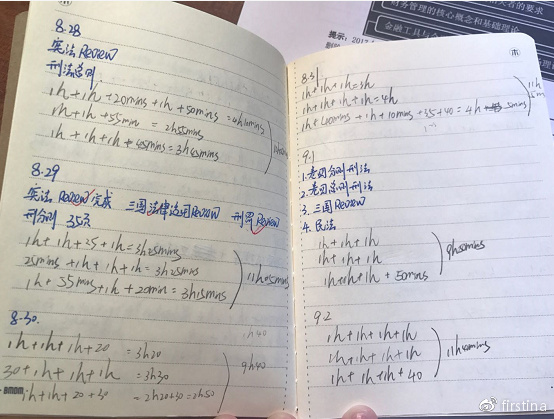 8.28
宪法 Review
刑法总则.
1h+1h+20mins+1h+50mins=4h10mins
1h+1h+55min = 2h55mins
1h+1h+1h+45mins=3h45mins
8.29
宪法 Review完成 三国法律适用Review 刑 Review
刑分则 35页
1h+1h+25+1h=3h25mins
25mins+1h+1h+1h=3h25mins
1h+55mins+1h+20min=3h15mins
8.30.
1h40
1h+1h+1h+20 =3h20
30+1h+1h+1h =3h30
1h+1h+20+30 =2h20+30=2h50
9h40
8.31
1h+1h+1h=3h
1h+1h+1h+1h=4h
1h+40mins+1h+10mins+35+40=4h 5mins
11h
9.1
1. 分则刑法
2. 总则刑法
3. 三国Review
4. 民法
1h+1h+1h
1h+1h+1h
1h+1h+1h+50mins
9h50mins
9.2
1h+1h+1h+1h
1h+1h+1h+1h
1h+1h+1h+40
11h40mins
财务管理的核心概念和基础理论
金融工具与
提示: 2017
@firstina